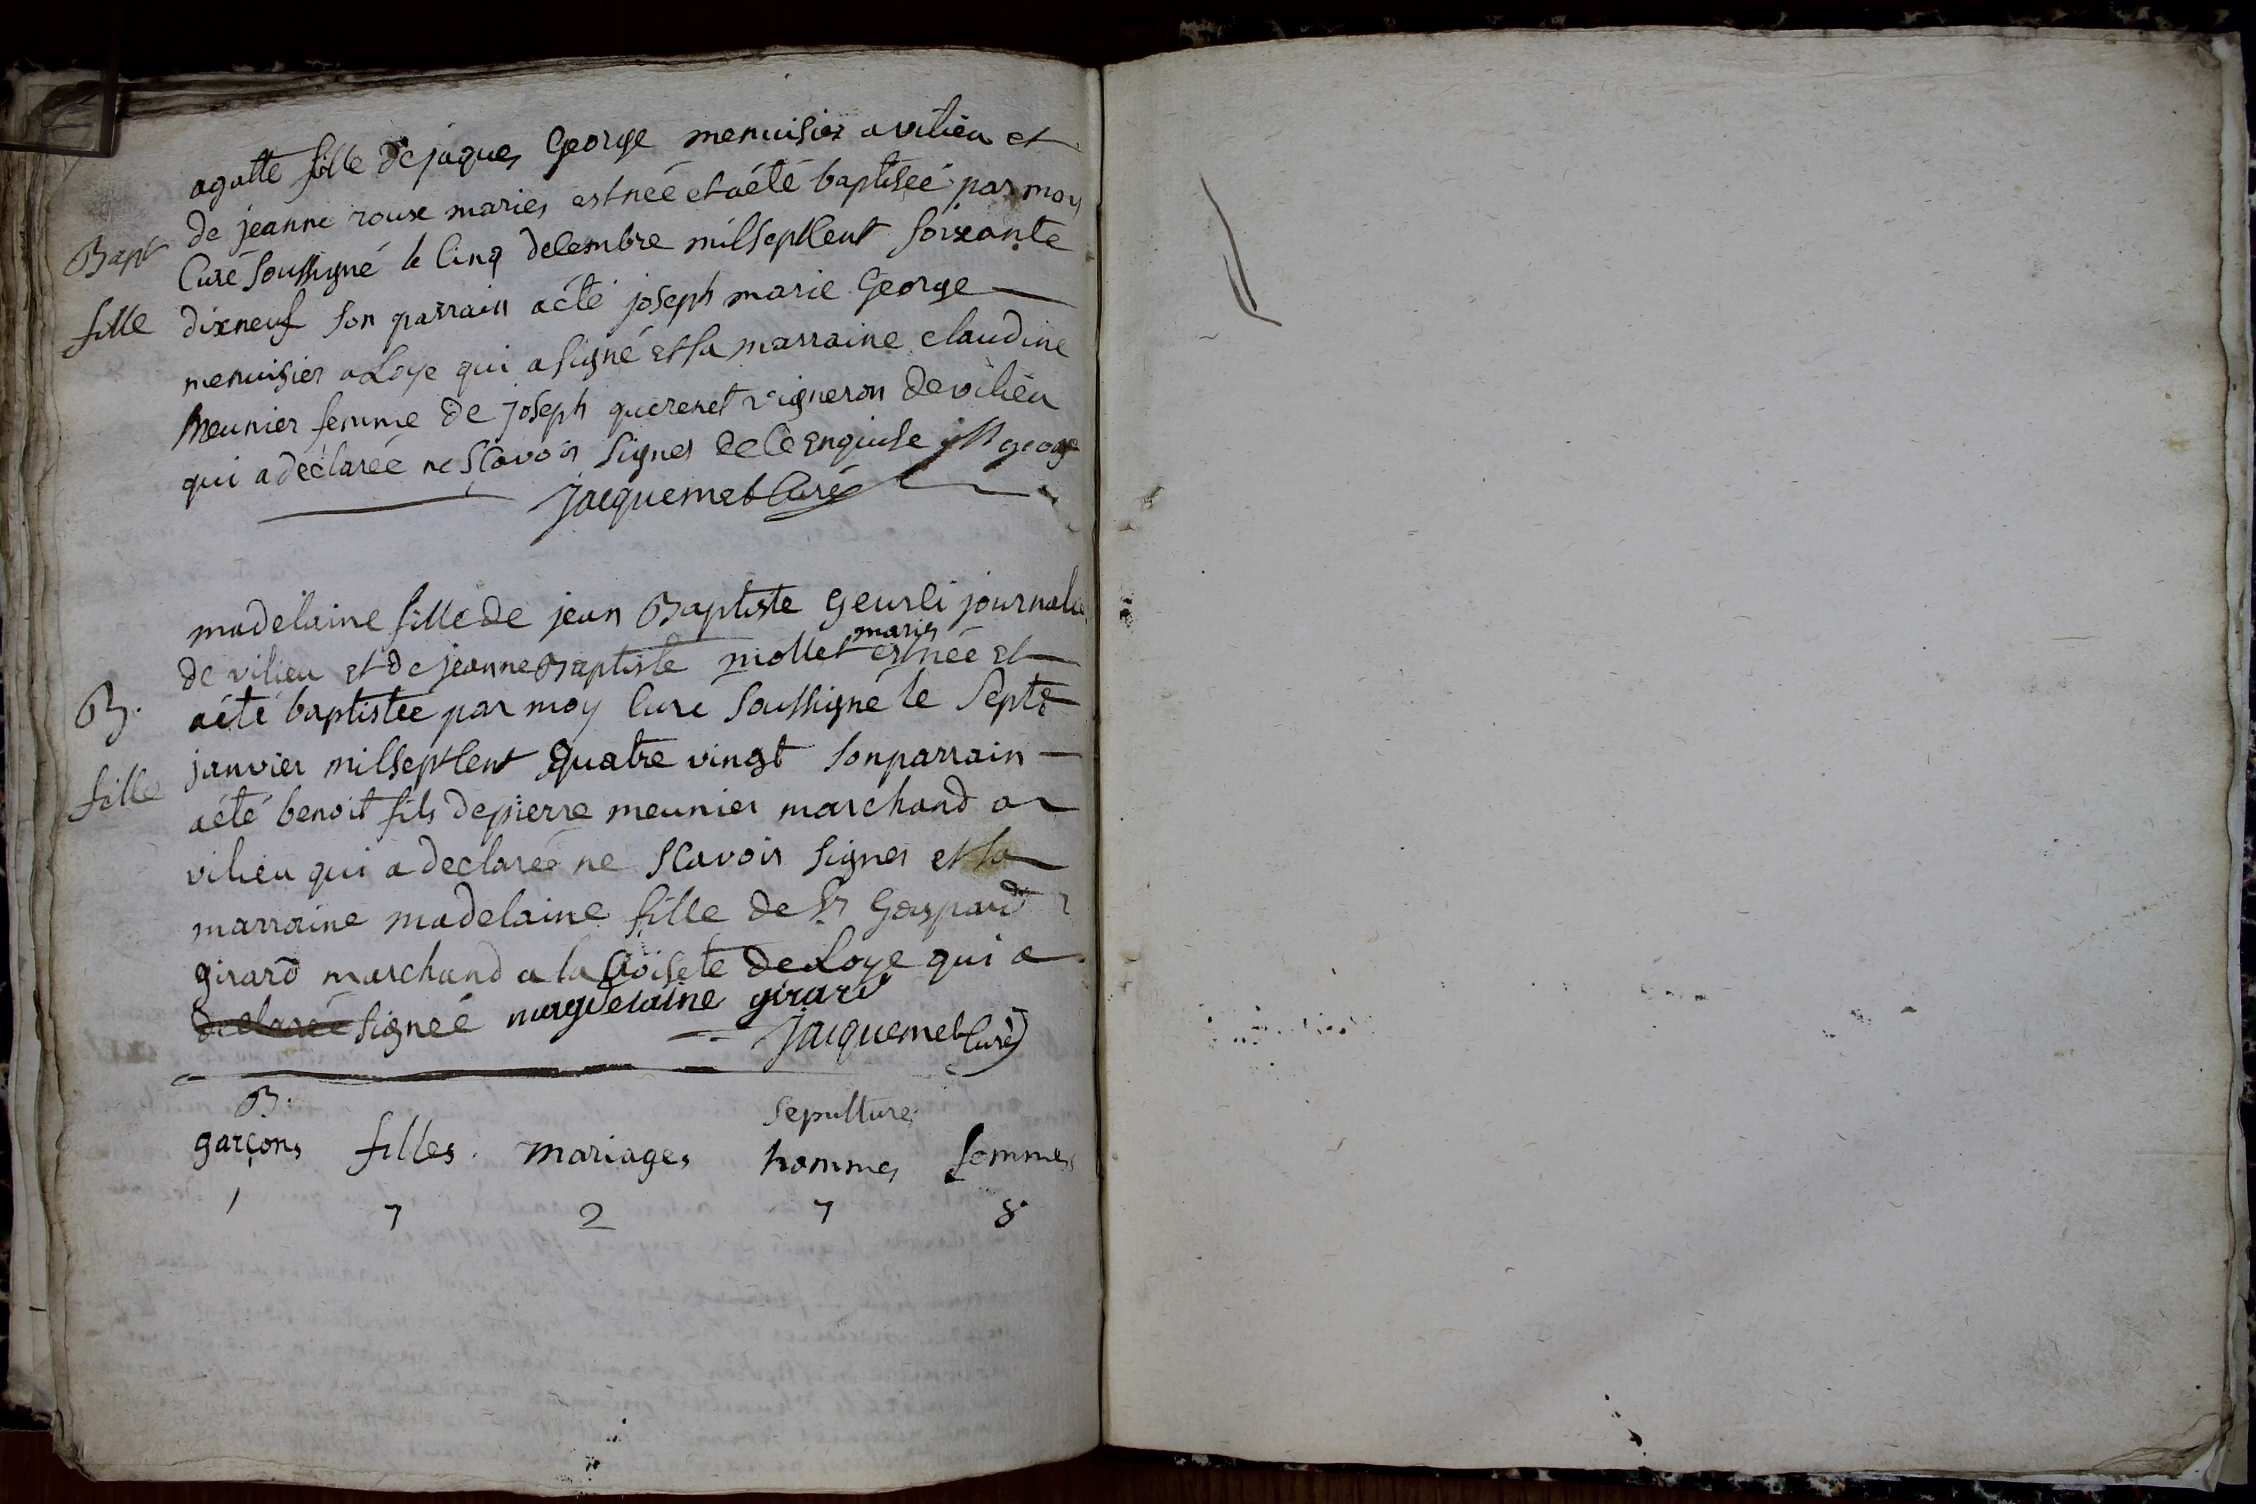 agatte fille de jaques George menuisier a vilieu et
de jeanne roux maries est née et a été baptisée par moy
Bapt
Curé soussigné le cinq decembre mil sept cent soixante
fille
dixneuf son parrain a eté joseph marie George
menuisier a Loye qui a signé et sa marraine claudine
Meunier femme de joseph querenet vigneron de vilieu
qui a declarée ne scavoir signer de ce enquise george
jacquemet Curé
madelaine fille de jean Baptiste geurli journalie
maries
de vilieu et de jeanne Baptiste mollet est née et
B.
a été baptistée par moy Curé soussigné le sept
janvier mil sept cent quatre vingt son parrain
fille
a été benoit fils de pierre meunier marchand a
vilieu qui a declareé ne scavoir signer et sa
marraine madelaine fille de Sr Gaspard
girard marchand a la Croisete de Loye qui a
declarée signée magdelaine girard
jacquemet Curé
B. sepulture
garçons filles mariages hommes femmes
1 7 2 7 8